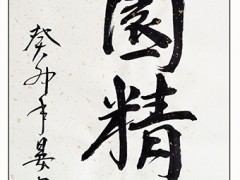 園精
癸卯年晏